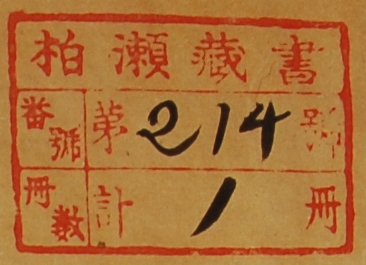 柏瀬藏書
番號 第214號
冊数 計1冊